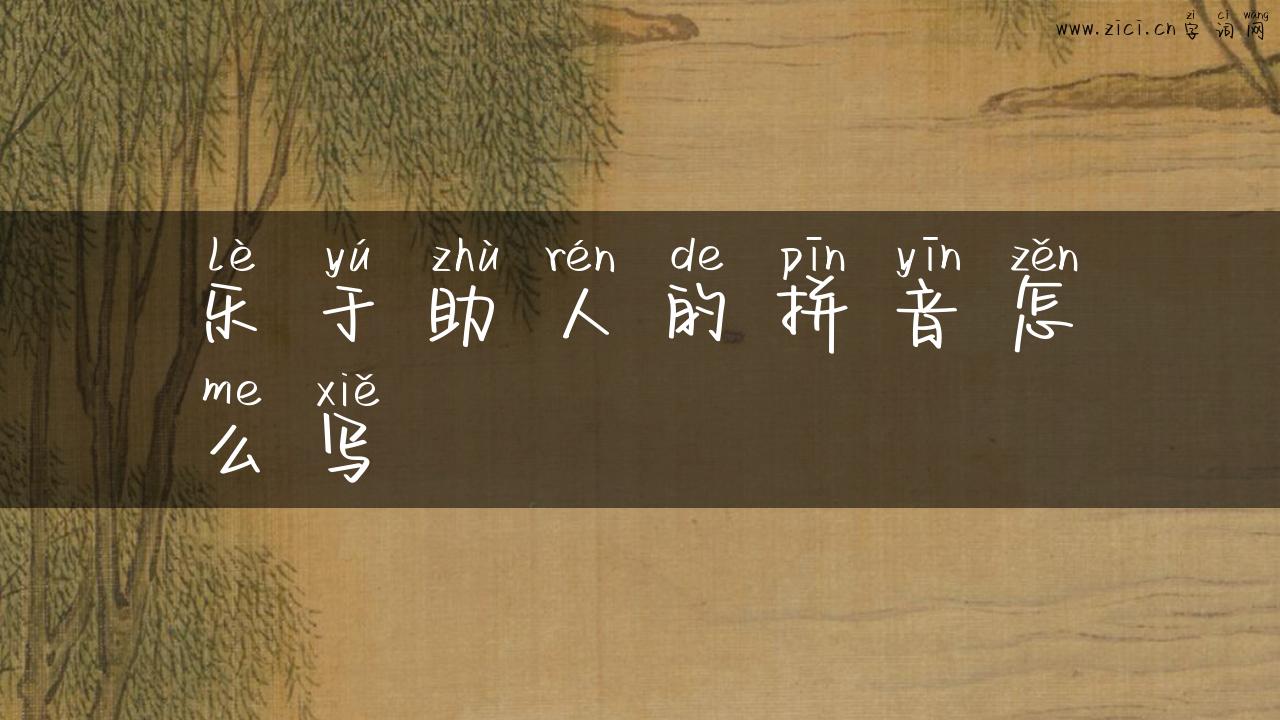 zì cí wǎng
www.zici.cn 字词网
lè yú zhù rén de pīn yīn zěn
乐于助人的拼音怎
me xiě
么写